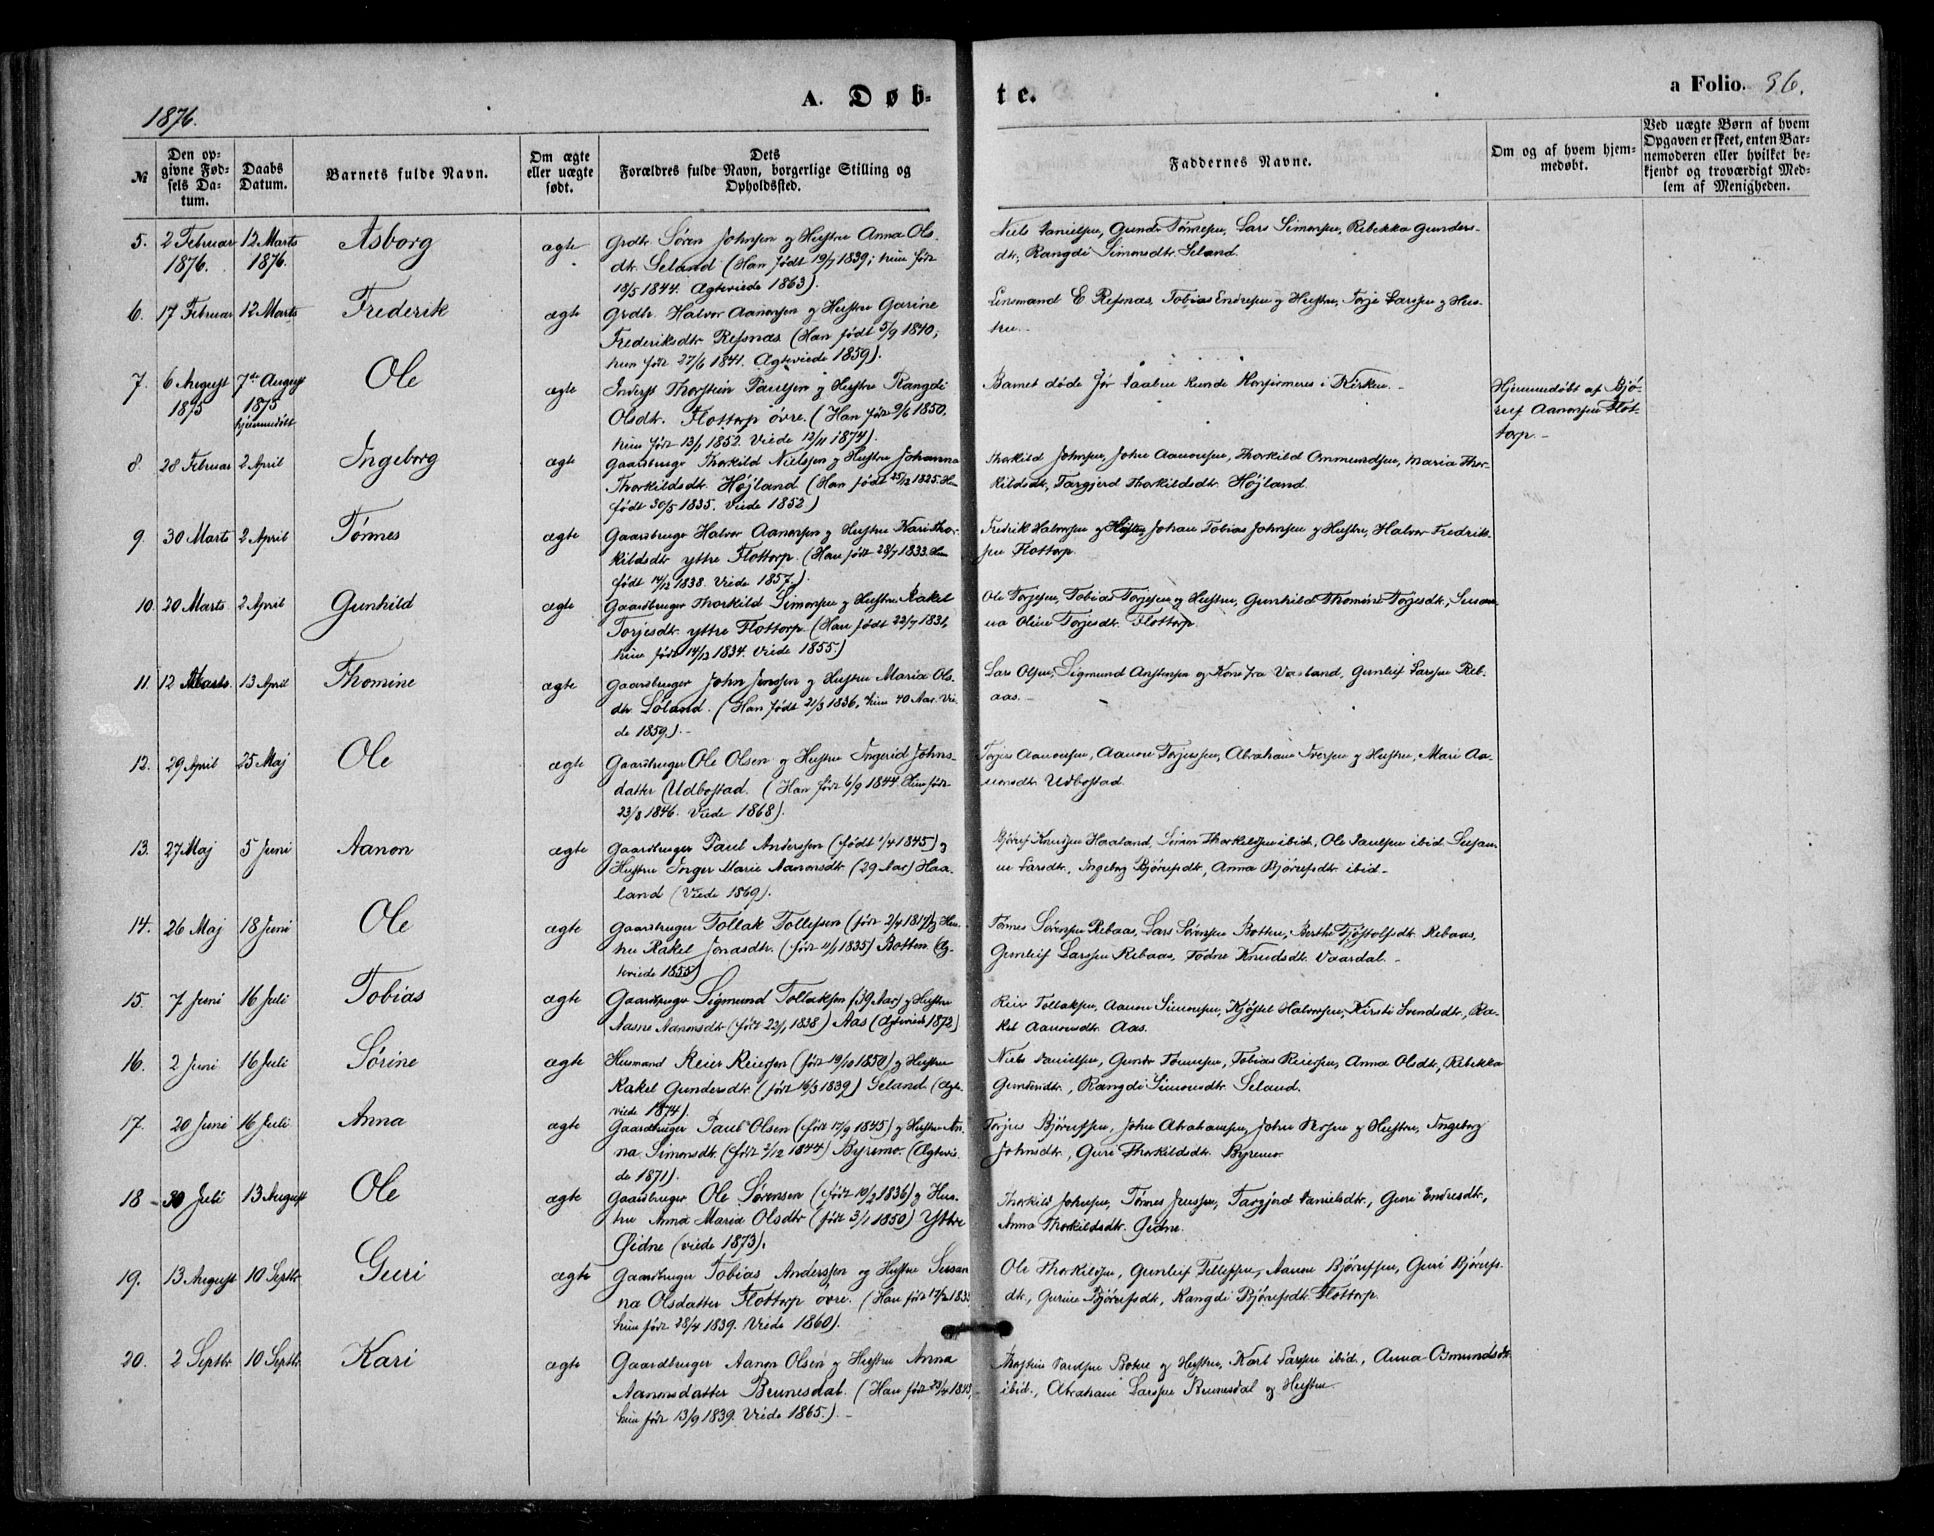 1876.
A. Døb-
te.
a Folio. 36.
№
Den opgivne Fødsels Datum.
Daabs Datum.
Barnets fulde Navn.
Om ægte eller uægte født.
Dets Forældres fulde Navn, borgerlige Stilling og Opholdssted.
Faddernes Navne.
Om og af hvem hjemmedøbt.
Ved uægte Børn af hvem Opgaven er skeet, enten Barnemoderen eller hvilket bekjendt og troværdigt Medlem af Menigheden.
5. 2 Februar 1876. 12 Marts 1876. Asborg ægte
Grdbr. Søren Johnsen og Hustru Anna Ols-
dtr. Seland (Han født 19/7 1839; hun født
18/5 1844. Ægteviede 1863).
Niels Danielsen, Gundr Tønnesen, Lars Simonsen, Rebekka Gunders-
dtr, Rangdi Simonsdtr. Seland.
6. 17 Februar 12 Marts Frederik ægte
Grdbr. Halvor Aanonsen og Hustru Garine
Frederiksdtr. Refsnæs (Han født 5/9 1840;
hun født 27/6 1841. Ægteviede 1859).
Lensmand E Refsnæs, Tobias Endresen og Hustru, Torje Larssen og Hus-
tru.-
7. 6 August 1875 7de August 1875 hjemmedøbt Ole ægte
Inderst Thorstein Paulsen og Hustru Rangdi
Olsdtr. Flottorp øvre. (Han født 9/6 1850.
hun født 13/1 1852. Viede 12/11 1874).
Barnet døde før Daaben kunde Konfirmeres i Kirken.-
Hjemmedøbt af Bjø-
ruf Aanonsen Flot-
torp.-
8. 28 Februar 2 April Ingeborg ægte
Gaardbruger Thorkild Nielsen og Hustru Johanna
Thorkildsdtr. Højland (Han født 25/12 1825. Hun
født 30/5 1835. Viede 1852)
Thorkild Johnsen, John Aanonsen, Thorkild Ommundsen, Maria Thor-
kildsdtr, Targjerd Thorkildsdtr. Højland.
9. 30 Marts 2 April Tønnes ægte
Gaardbruger Halvor Aanonsen og Hustru Kari Thor-
kildsdtr yttre Flottorp. (Han født 28/7 1833. Hun
født 14/12 1838. Viede 1857.)
Fredrik Halvorsen og Hustru, Johan Tobias Johnsen og Hustru, Halvor Fredrik-
sen Flottorp.
10. 20 Marts 2 April Gunhild ægte
Gaardbruger Thorkild Simonsen og Hustru Rakel
Torjesdtr. yttre Flottorp. (Han født 22/7 1831,
hun født 14/12 1834. Viede 1855)
Ole Torjesen, Tobias Torjesen og Hustru, Gunhild Thomine Torjesdtr., Susan-
na Oline Torjesdtr. Flottorp.
11. 12 Marts 13 April Thomine ægte
Gaardbruger John Jenssen og Hustru Maria Ols-
dtr. Løland. (Han født 21/3 1836, hun 40 Aar. Vie-
de 1859).-
Lars Olsen, Sigmund Anstensen og Kone fra Vaasland, Gunleif Larssen Reb-
aas.-
12. 29 April 25 Maj Ole ægte
Gaardbruger Ole Olsen og Hustru Ingerid Johns-
datter Udbostad. (Han født 6/9 1844. Hun født
23/8 1846. Viede 1868).
Torjus Aanonsen, Aanon Torjussen, Abraham Iversen og Hustru, Mari Aa-
nonsdtr. Udbostad.
13. 27 Maj 5 Juni Aanon ægte
Gaardbruger Paul Anderssen (født 1/4 1845) og
Hustru Inger Marie Aanonsdtr (29 Aar) Haa-
land (Viede 1869).
Bjøruf Knudsen Haaland, Simon Thorkildsen ibid, Ole Paulsen ibid. Susan-
ne Larsdtr., Ingeborg Bjørufsdtr., Anna Bjørufsdtr. ibid.-
14. 26 Maj 18 Juni Ole ægte
Gaardbruger Tollak Tollefsen (født 2/4 1817) og Hus-
tru Rakel Jonasdtr. (født 11/1 1835) Botten. (Æg-
teviede 1855)
Tønnes Sørensen Rebaas, Lars Sørensen Botten, Berthe Tjøstolfsdtr. Rebaas,
Gunleif Larssen Rebaas, Todne Knudsdtr. Vaardal.-
15. 7 Juni 16 Juli Tobias ægte
Gaardbruger Sigmund Tollaksen (39 Aar) og Hustru
Aasne Aanonsdtr. (født 22/1 1838) Aas (Ægteviede 1872)
Reier Tollaksen, Aanon Simonsen, Kjøstel Halvorsen, Kirsti Svendsdtr., Ra-
kel Aanonsdtr. Aas.
16. 2 Juni 16 Juli Sørine ægte
Husmand Reier Reiersen (født 19/10 1850) og Hustru
Rakel Gundersdtr. (født 16/3 1839) Seland (Ægte-
viede 1874).
Niels Danielsen, Gundr Tønnesen, Tobias Reiersen, Anna Olsdtr., Rebekka
Gundersdtr., Rangdi Simonsdtr. Seland.
17. 20 Juni 16 Juli Anna ægte
Gaardbruger Paul Olsen (født 17/9 1845) og Hustru An-
na Simonsdtr. (født 2/12 1844) Byremo. (Ægtevie-
de 1871).
Torjus Bjørufsen, John Abrahamsen, John Rosen og Hustru, Ingeborg
Johnsdtr., Guri Thorkildsdtr. Byremo.
18 30 Juli 13 August Ole ægte
Gaardbruger Ole Sørensen (født 10/2 1836) og Hus-
tru Anna Maria Olsdtr (født 3/1 1850) Yttre
Øidne (viede 1873).
Thorkild Johnsen, Tønnes Jenssen, Targjerd Danielsdtr., Guri Endresdtr,
Anna Thorkildsdtr. Øidne.
19. 13 August 10 Septbr Guri ægte
Gaardbruger Tobias Anderssen og Hustru Susan
na Olsdatter Flottorp øvre. (Han født 17/2 1833
hun født 28/4 1839. Viede 1860).
Ole Thorkildsen, Gunleif Tellefsen, Aanon Bjørufsen, Guri Bjørufs-
dtr., Gurine Bjørufsdtr, Rangdi Bjørufsdtr. Flottorp.
20. 2 Septbr 10 Septbr. Kari ægte
Gaardbruger Aanon Olsen og Hustru Anna
Aanonsdatter Brunesdal. (Han født 23/4 1843,
hun født 13/9 1839. Viede 1865.)-
Thostein Paulsen Boten og Hustru, Karl Larssen ibid., Anna Omundsdtr
ibid., Abraham Larssen Brunesdal og Hustru.